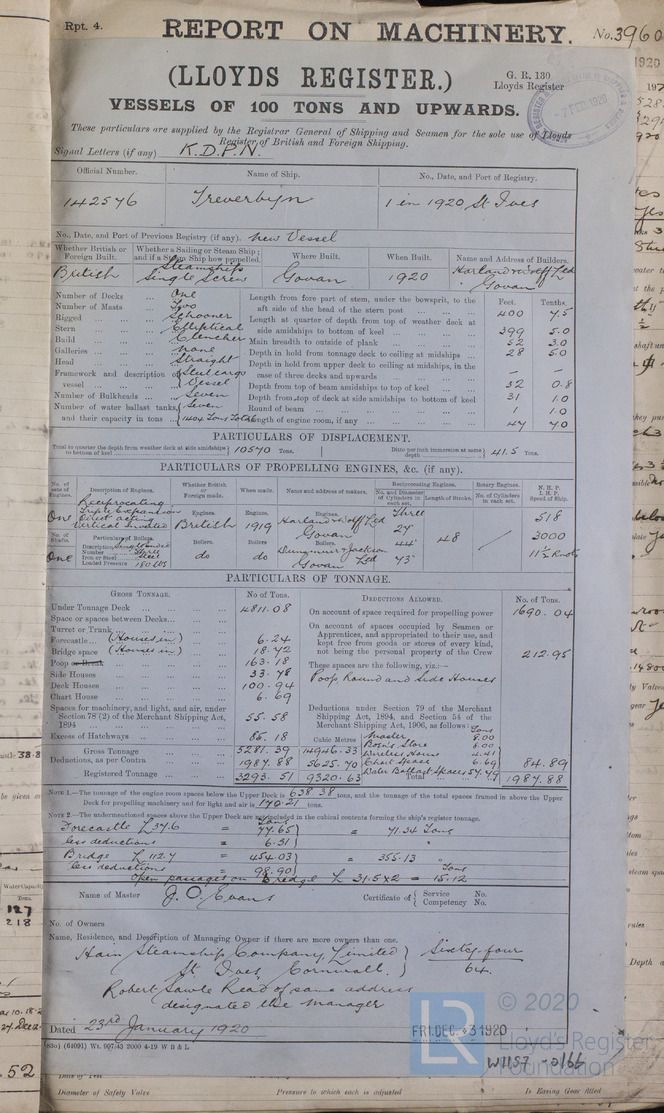 Rpt. 4.
REPORT ON MACHINERY.
No. 3960
(LLOYDS REGISTER.)
G. R. 130
Lloyds Register
VESSELS OF 100 TONS AND UPWARDS.
These particulars are supplied by the Registrar General of Shipping and Seamen for the sole use of Lloyds
Register of British and Foreign Shipping.
Signal Letters (if any) K.D.P.N.
Official Number. Name of Ship. No., Date, and Port of Registry.
142576 Treverbyn 1 in 1920 St Ives
No., Date, and Port of Previous Registry (if any). New Vessel
Whether British or Foreign Built. Whether a Sailing or Steam Ship; and if a Steam Ship how propelled. Where Built. When Built. Name and Address of Builders.
British Steamship Single Screw Govan 1920 Harland Wolff Ltd Govan
Number of Decks One
Number of Masts Two
Rigged Schooner
Stern Elliptical
Build Clencher
Galleries None
Head Straight
Framework and description of vessel Steel cargo Vessel
Number of Bulkheads Seven
Number of water ballast tanks, and their capacity in tons Seven 1404 Tons Total
Feet. Tenths.
Length from fore part of stem, under the bowsprit, to the aft side of the head of the stern post 400 7.5
Length at quarter of depth from top of weather deck at side amidships to bottom of keel 399 5.0
Main breadth to outside of plank 52 3.0
Depth in hold from tonnage deck to ceiling at midships 28 5.0
Depth in hold from upper deck to ceiling at midships, in the case of three decks and upwards — —
Depth from top of beam amidships to top of keel 32 0.8
Depth from top of deck at side amidships to bottom of keel 31 1.0
Round of beam 1 1.0
Length of engine room, if any 47 7.0
PARTICULARS OF DISPLACEMENT.
Total to quarter the depth from weather deck at side amidships to bottom of keel 10570 Tons. Ditto per inch immersion at same depth 41.5 Tons.
PARTICULARS OF PROPELLING ENGINES, &c. (if any).
No. of sets of Engines. Description of Engines. Whether British or Foreign made. When made. Name and address of makers. Reciprocating Engines. No. and Diameter of Cylinders in each set. Length of Stroke. Rotary Engines. No. of Cylinders in each set. N.H.P. I.H.P. Speed of Ship.
One Reciprocating Triple Expansion Direct acting Vertical Inverted Engines. British Engines. 1919 Engines. Harland Wolff Ltd Govan Three 27" 44" 73" 48 518 3000 11½ Knots
No. of Shafts. Particulars of Boilers.
One Description Number Three Iron or Steel Steel Loaded Pressure 180 lbs Boilers. do Boilers do Boilers. Dunsmuir & Jackson Ltd Govan
PARTICULARS OF TONNAGE.
GROSS TONNAGE. No of Tons.
Under Tonnage Deck 4811.08
Space or spaces between Decks
Turret or Trunk
Forecastle (Houses in) 6.24
Bridge space (Houses in) 18.42
Poop or Break 163.18
Side Houses 33.78
Deck Houses 100.94
Chart House 6.69
Spaces for machinery, and light, and air, under Section 78 (2) of the Merchant Shipping Act, 1894 55.58
Excess of Hatchways 85.18
Cubic Metres
Gross Tonnage 5281.39 14946.33
Deductions, as per Contra 1987.88 5625.70
Registered Tonnage 3293.51 9320.63
DEDUCTIONS ALLOWED. No. of Tons.
On account of space required for propelling power 1690.04
On account of spaces occupied by Seamen or Apprentices, and appropriated to their use, and kept free from goods or stores of every kind, not being the personal property of the Crew 212.95
These spaces are the following, viz.:—
Poop, Round and Side Houses
Deductions under Section 79 of the Merchant Shipping Act, 1894, and Section 54 of the Merchant Shipping Act, 1906, as follows:
Tons
Master 8.00
Bosn's Store 5.00
Wireless House
Chart Space 6.69
Water Ballast Spaces 84.89
Total 1987.88
NOTE 1.—The tonnage of the engine room spaces below the Upper Deck is 638.38 tons, and the tonnage of the total spaces framed in above the Upper
Deck for propelling machinery and for light and air is 170.21 tons.
NOTE 2.—The undermentioned spaces above the Upper Deck are not included in the cubical contents forming the ship's register tonnage.
Forecastle L 37.6 = 77.65 Tons = 71.34 Tons
less deductions = 6.31
Bridge L 112.7 = 454.03 = 355.13 "
less deductions = 98.90
Open passages on Bridge L 31.5 x 2 = 15.12 Tons
Name of Master J. O. Evans Certificate of Service No. Competency No.
No. of Owners
Name, Residence, and Description of Managing Owner if there are more owners than one.
Hain Steamship Company Limited Sixty four
St Ives, Cornwall. 64.
Robert Sawle Read of same address
designated the manager
Dated 23rd January 1920
FRI. DEC. 3 1920
© 2020
LR
Lloyd's Register
Foundation
W1157-0166
(83o) (64091) Wt. 907/43 2000 4-19 W B & L
Diameter of Safety Valve Pressure to which each is adjusted Is Easing Gear fitted